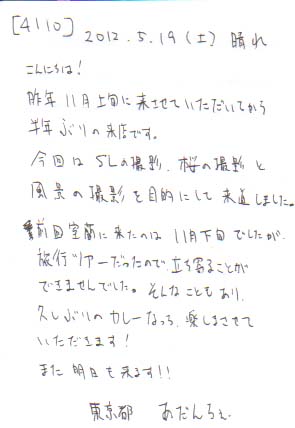 [4110] 2012.5.19(土) 晴れ
こんにちは!
昨年11月上旬に来させていただいてから
半年ぶりの来店です。
今回はSLの撮影、桜の撮影と
風景の撮影を目的にして来道しました。
前回室蘭に来たのは11月下旬でしたが、
旅行ツアーだったので、立ち寄ることが
できませんでした。そんなこともあり、
久しぶりのカレーなっち、楽しまさせて
いただきます!
また明日も来ます!!
東京都